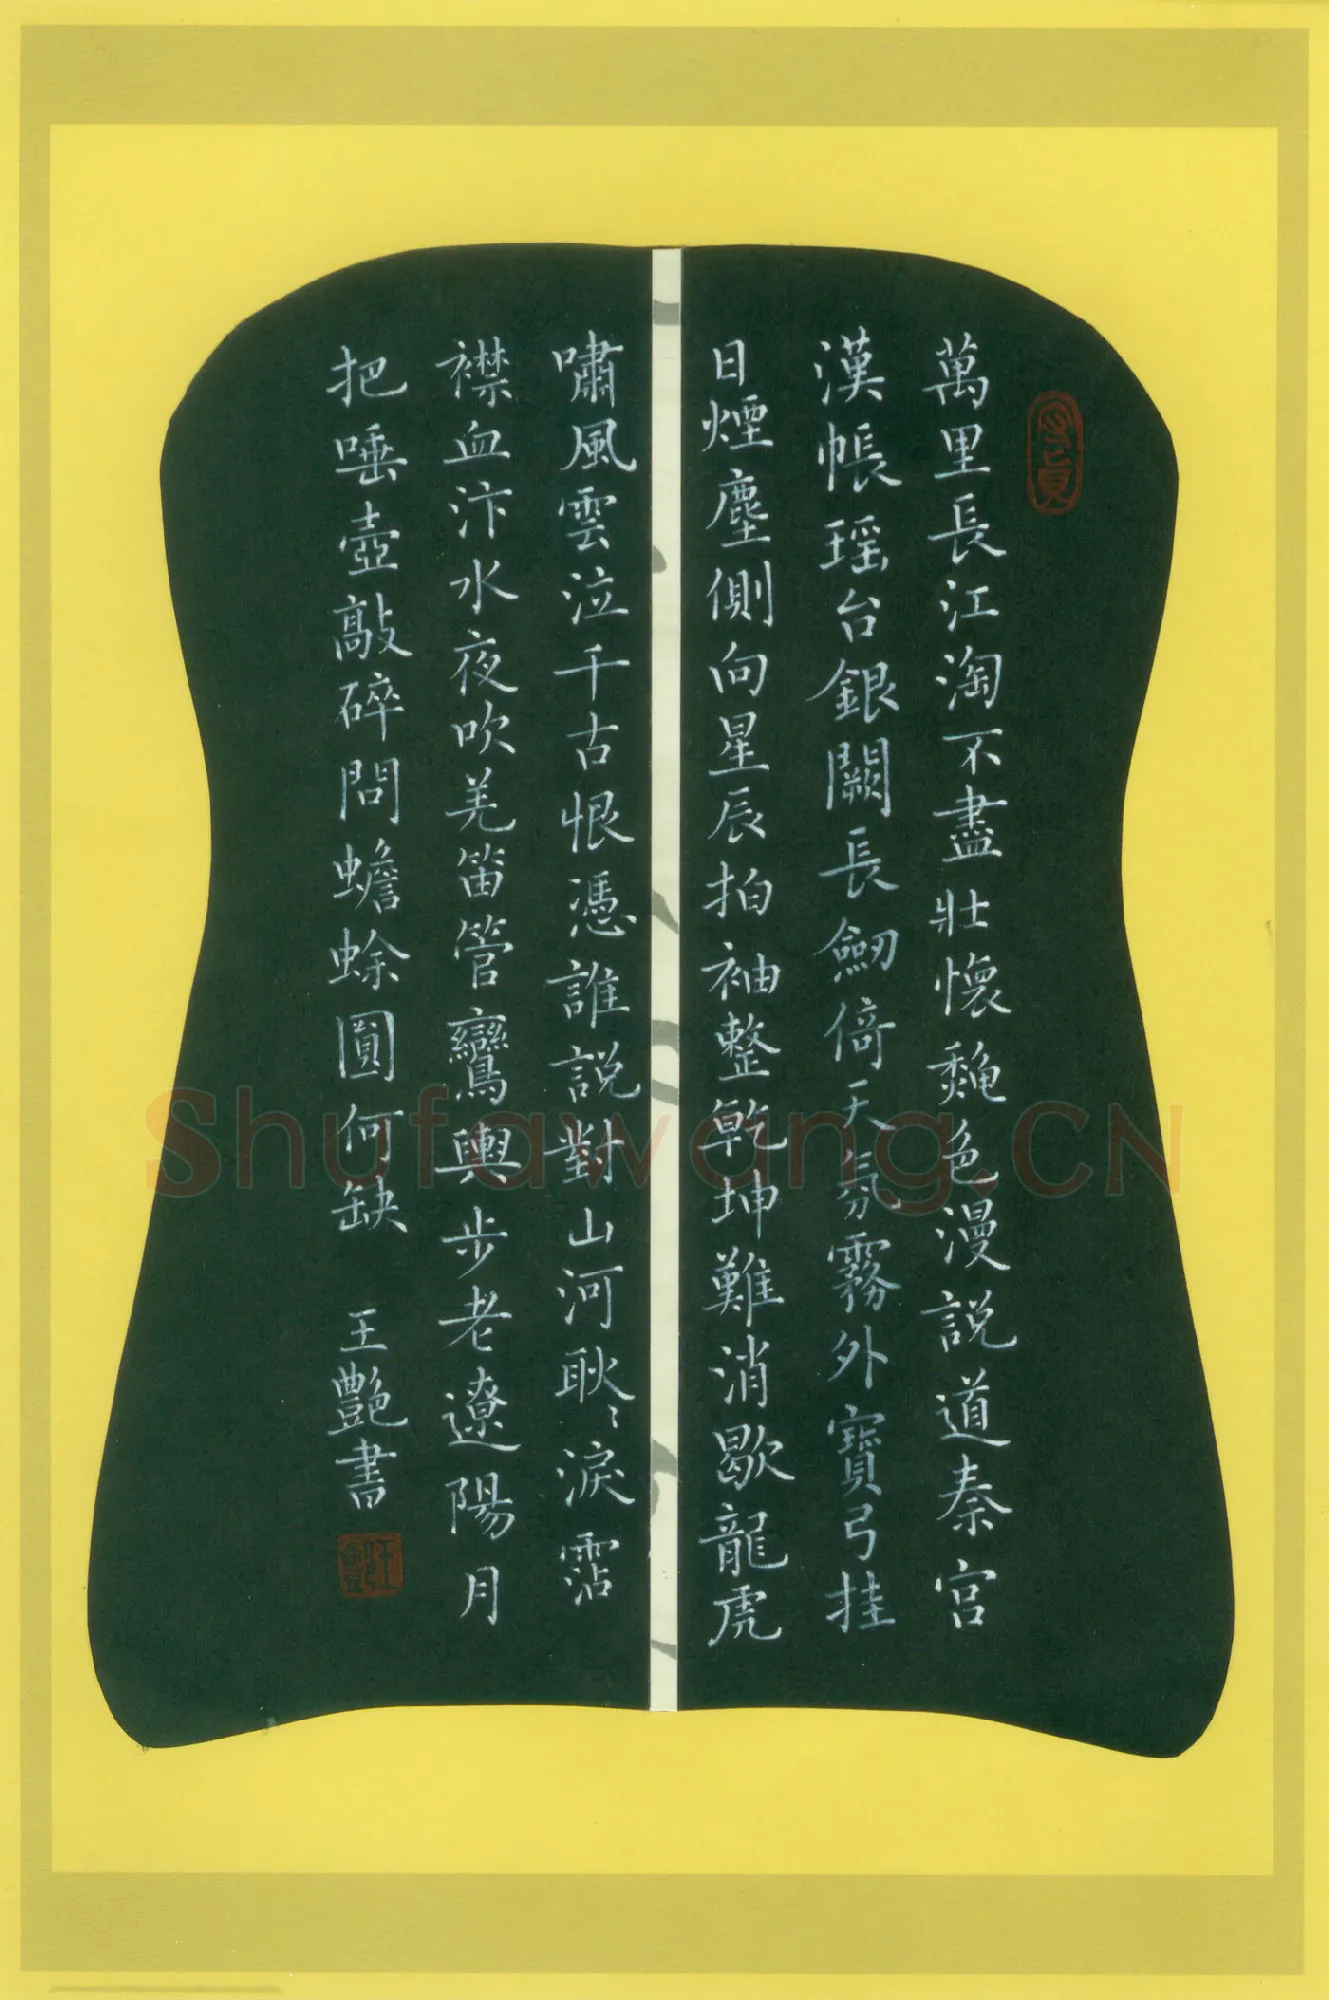 萬里長江淘不盡壯懷秋色漫説道秦宮
漢帳瑶台銀闕長劒倚天氛霧外寶弓挂
日煙塵側向星辰拍袖整乾坤難消歇龍虎
嘯風雲泣千古恨憑誰説對山河耿〻淚霑
襟血汴水夜吹羌笛管鸞輿步老遼陽月
把唾壺敲碎問蟾蜍圓何缺
王艷書
王艷
Shufawang.CN